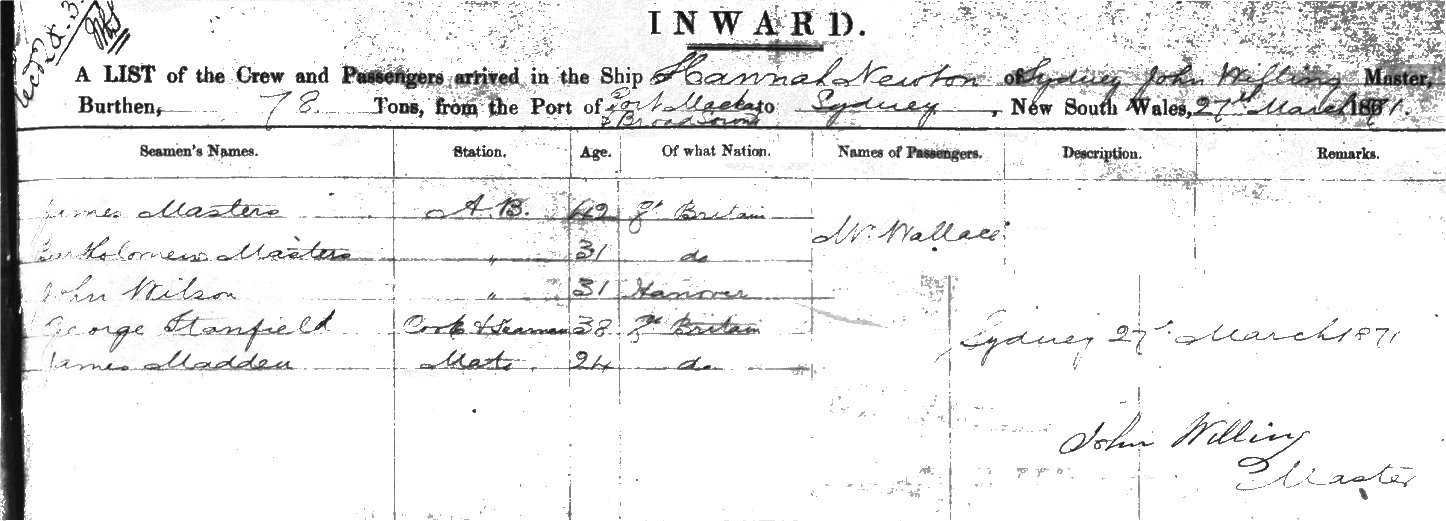 INWARD.
A LIST of the Crew and Passengers arrived in the Ship Hannah Newton of Sydney John Willing Master,
Burthen, 78 Tons, from the Port of Port Mackay to Sydney, New South Wales, 27th March 1871.
& Broad Sound
Seamen's Names. Station. Age. Of what Nation. Names of Passengers. Description. Remarks.
James Masters A.B. 42 Gt Britain
Mr. Wallace
Bartholomew Masters " 31 do
John Wilson " 31 Hanover
George Stanfield Cook & Seaman 38 Gt Britain
Sydney 27t March 1871
James Madden Mate 24 do
John Willing
Master